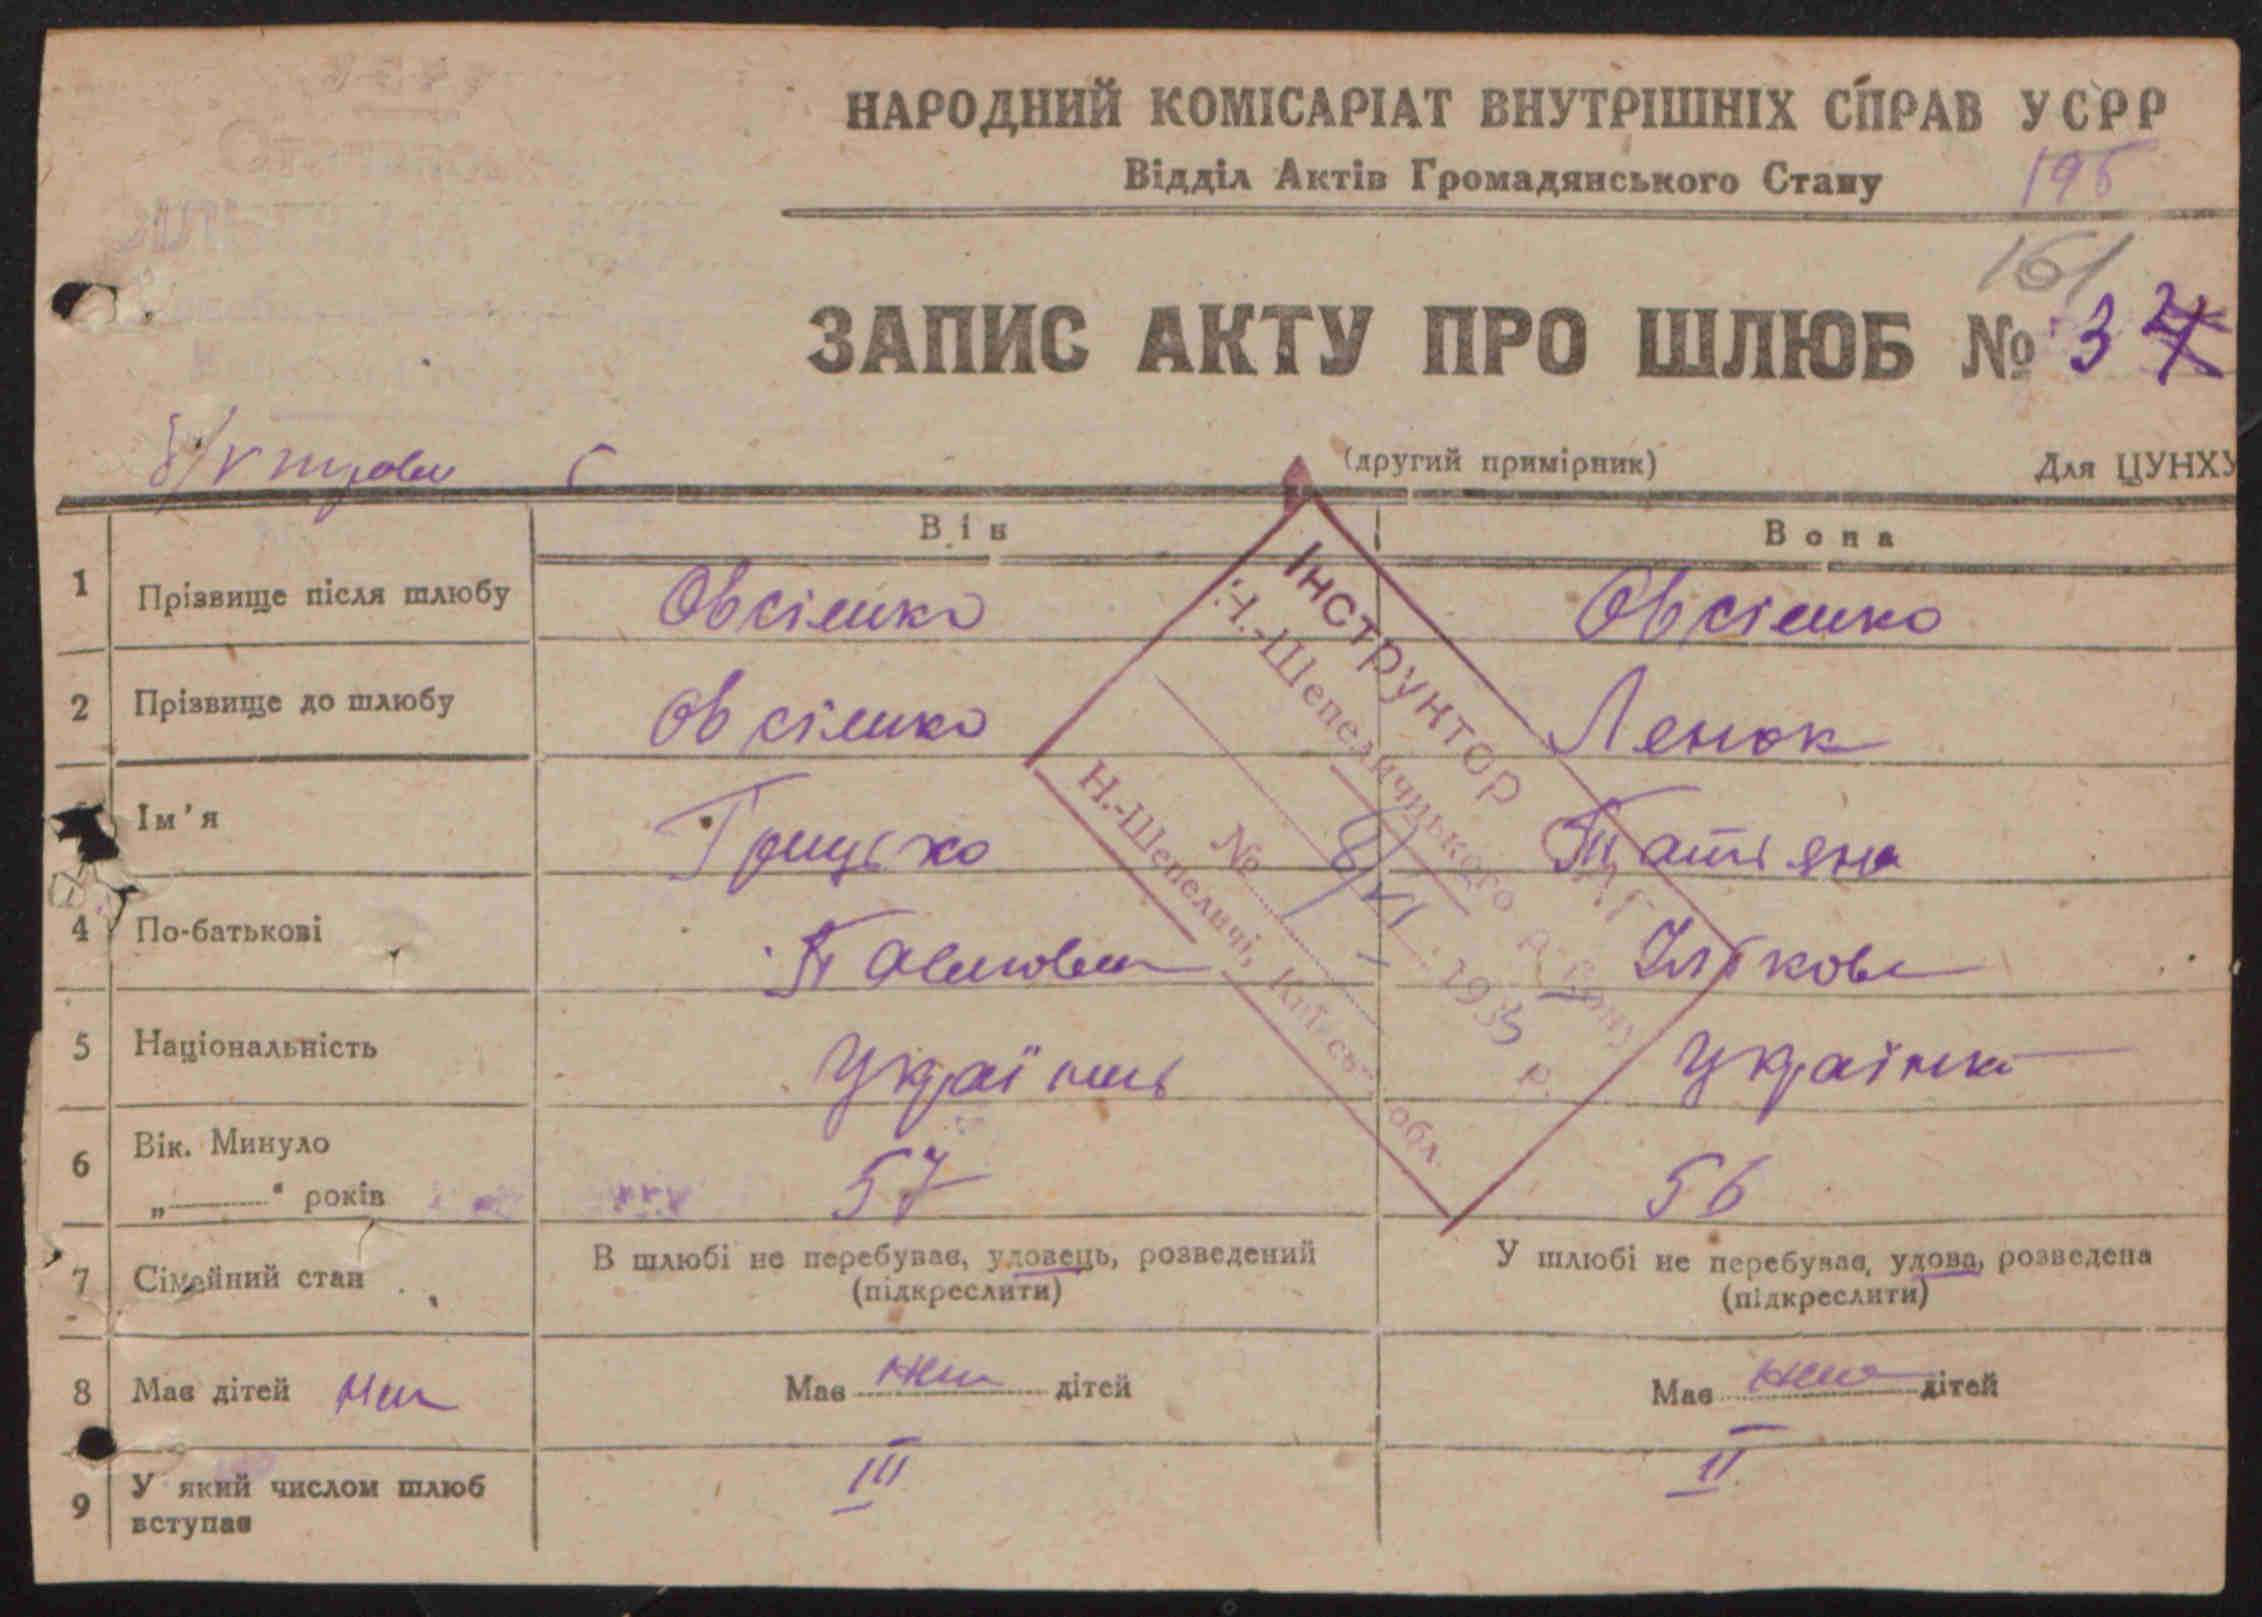 НАРОДНИЙ КОМІСАРІАТ ВНУТРІШНІХ СПРАВ УСРР
Відділ Актів Громадянського Стану
195
161
ЗАПИС АКТУ ПРО ШЛЮБ № 3
(другий примірник)
Для ЦУНХУ
Він
Вона
1 Прізвище після шлюбу Овсієнко Овсієнко
2 Прізвище до шлюбу Овсієнко Ленок
Ім'я Грицько Татіяна
4 По-батькові
5 Національність Українець Українка
6 Вік. Минуло
„——" років 57 56
7 Сімейний стан
В шлюбі не перебуває, удовець, розведений
(підкреслити)
У шлюбі не перебуває, удова, розведена
(підкреслити)
8 Має дітей
Має дітей
Має дітей
9 У який числом шлюб
вступає
III
II
Інструктор ЗАГ
Н.-Шепеличицького району
№
8/VI 1935 р.
Н.-Шепеличі, Київськ. обл.